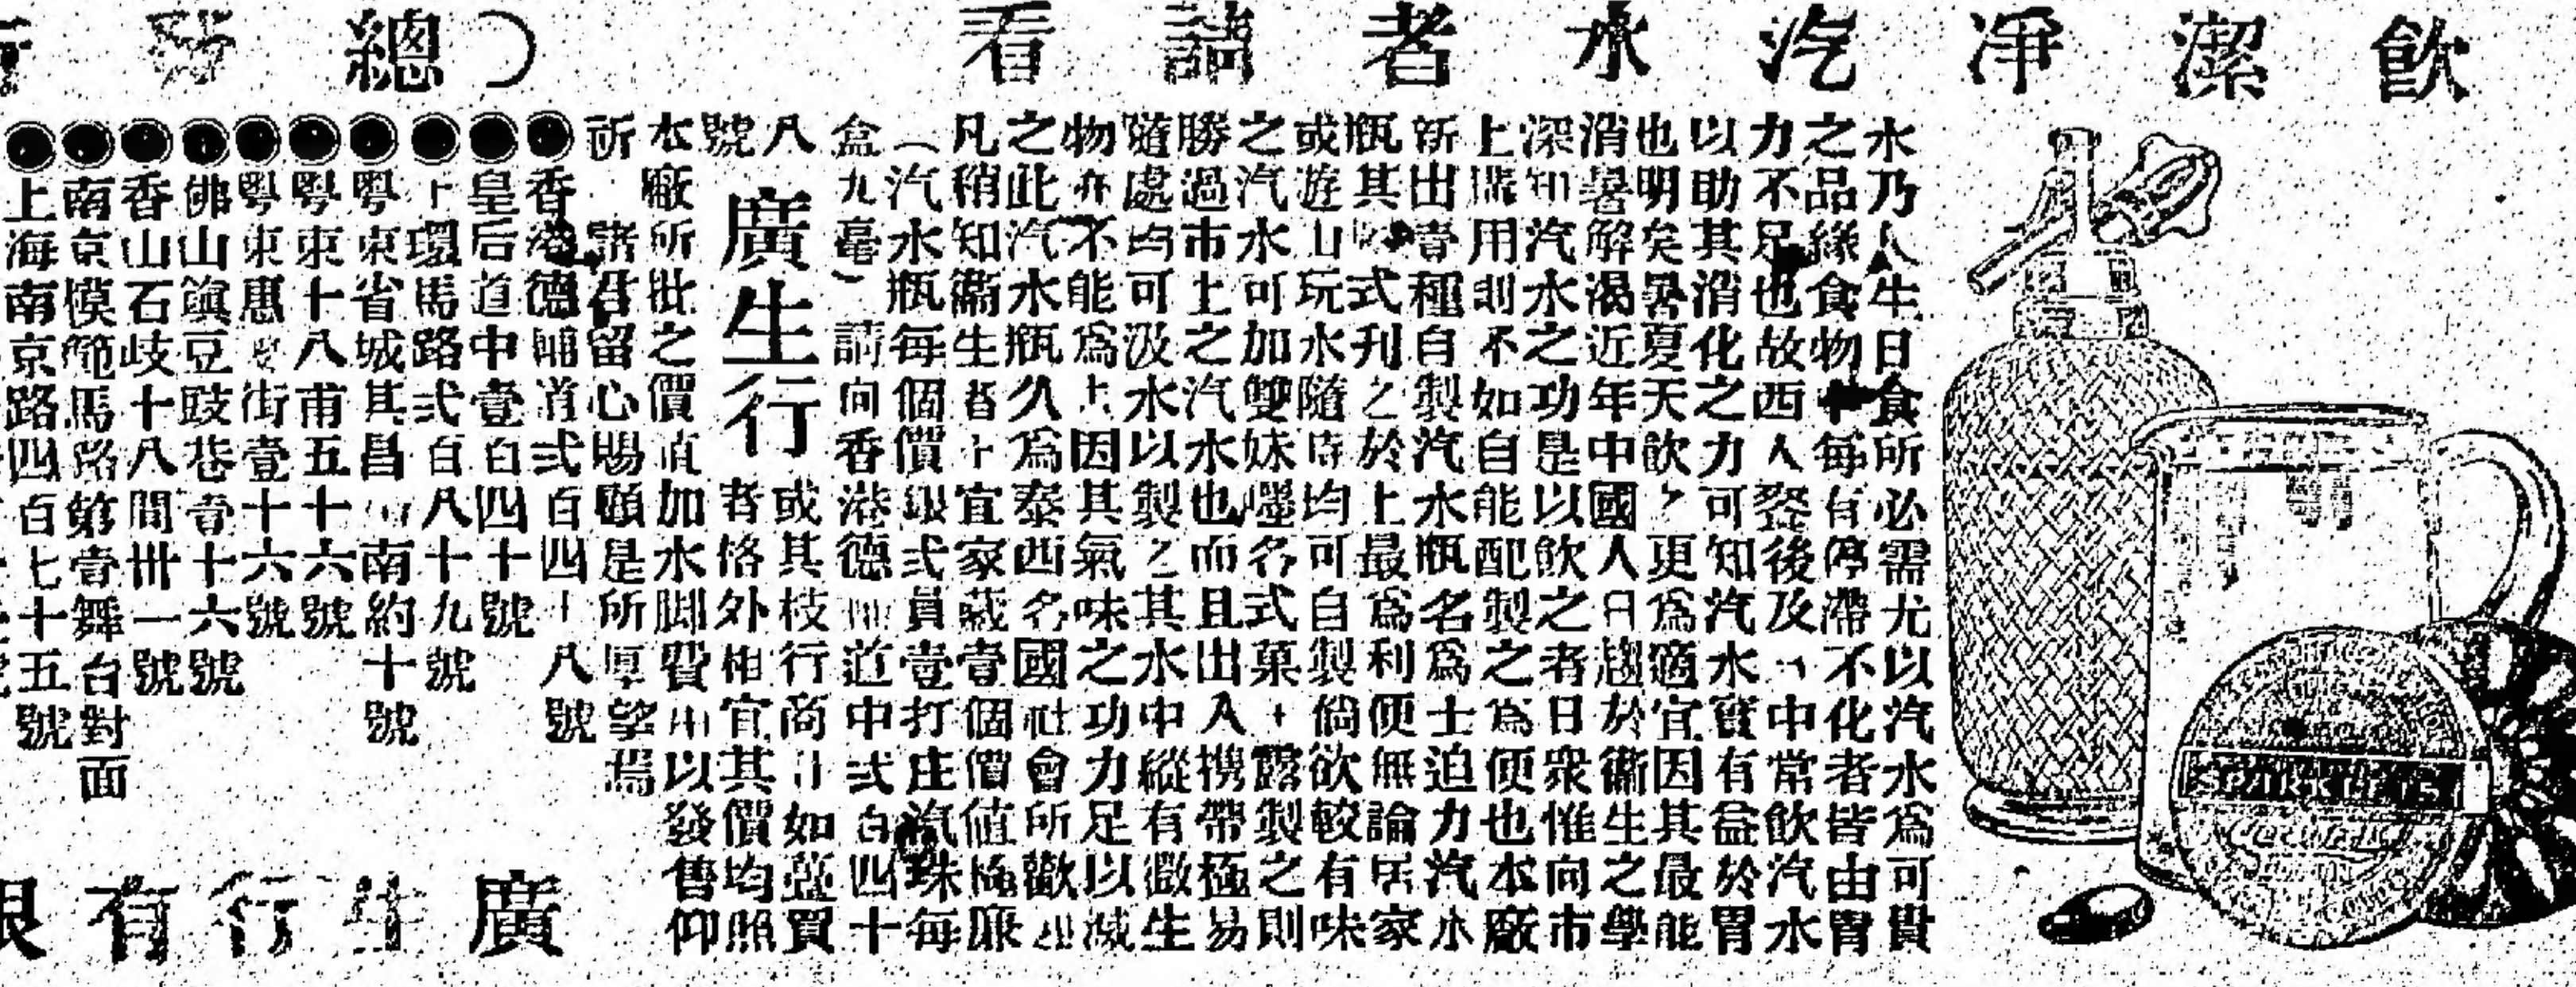 飲潔淨汽水者請看
水乃人生日食所必需尤以汽水為可貴
之品緣食物中每有停滯不化者皆由胃
力不足也故西人餐後及中常飲汽水
以助其消化之力可知汽水實有益於胃
也明矣暑夏天飲之更為適宜因其最能
消暑解渴近年中國人日趨於衞生之學
深知汽水之功是以飲之者日眾惟向市
上購用則不如自能配製之為便也本廠
新出壹種自製汽水瓶名為士迫力汽水
瓶其款式利之於上最為利便無論居家
或遊山玩水隨時均可自製倘欲較有味
之汽水可加雙妹嚜名式菓士露製之則
勝過市上之汽水也而且出入携帶極易
隨處均可汲水以製之其水中縱有微生
物亦不能為上因其氣味之功力足以滅
之此汽水瓶久為泰西名國社會所歡迎
凡稍知衞生者十宜家藏壹個價值極廉
（汽水瓶每個價銀弍員壹打庄汽珠每
盒九毫）請向香港德輔道中弍百四十
八或其枝行商店如蒞買
號廣生行者格外相宜其價均照
本廠所批之價值加水脚費用以發售仰
祈諸君留心賜顧是所厚望焉
總發行
香港德輔道弍百四十八號
皇后道中壹百四十號
上環馬路弍百八十九號
粤東省城其昌南約十號
粤東十八甫五十六號
粤東惠愛街壹十六號
佛山鎮豆豉巷壹十六號
香山石岐十八間卅一號
南京模範馬路第壹舞台對面
上海南京路四百七十五號
廣生行有限
SPARKLETS